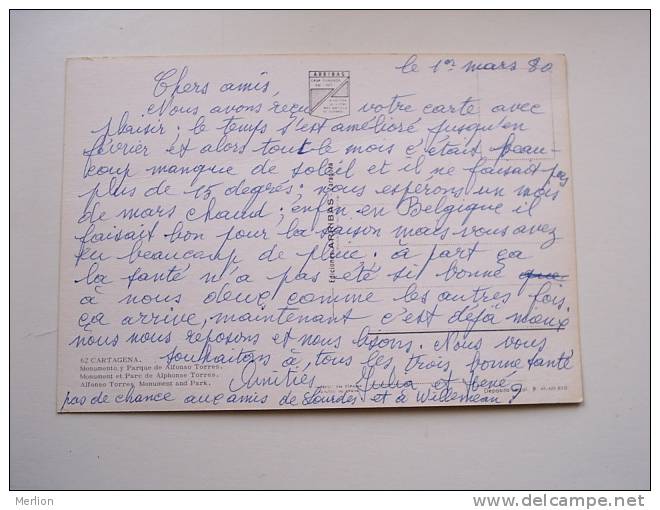 le 1er mars 80
Chers amis,
ARRIBAS
Nous avons reçu votre carte avec
plaisir : le temps s'est amélioré jusqu'en
février et alors tout le mois c'était beau-
coup manque de soleil et il ne faisait pas
plus de 15 degrés ; nous espérons un mois
de mars chaud ; enfin en Belgique il
faisait bon pour la saison mais vous avez
eu beaucoup de pluie : à part ça
la santé n'a pas été si bonne que
à nous deux comme les autres fois.
ça arrive, maintenant c'est déjà mieux
nous nous reposons et nous lisons. Nous vous
souhaitons à tous les trois bonne santé
Amitiés, Julia et René
pas de chance aux amis de Lourdes et à Willemean ?
Ediciones ARRIBAS Zaragoza
62 CARTAGENA.
Monumento y Parque de Alfonso Torres.
Monument et Parc de Alphonse Torres.
Alfonso Torres, Monument and Park.
Merlion
www.delcampe.net